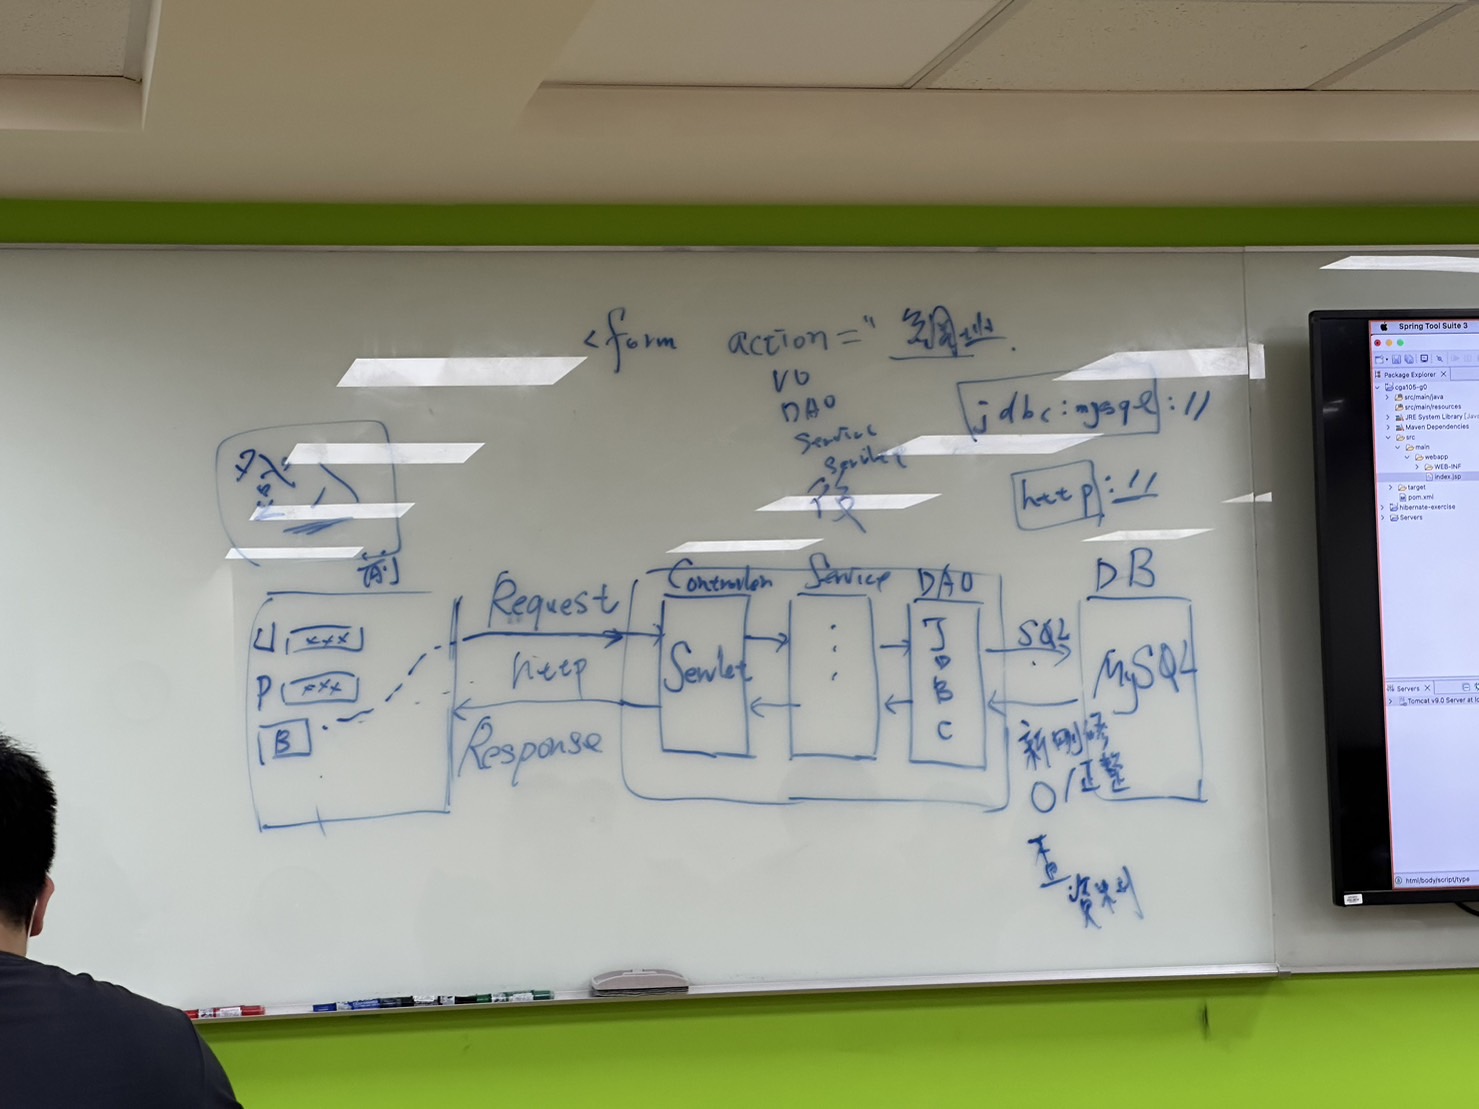 <form action="網址
VO
DAO
Service
Servlet
後
jdbc:mysql://
http://
U xxx
P xxx
B
Request
http
Response
Controller
Servlet
Service
DAO
JDBC
SQL
DB
MySQL
新刪修
0/1 整
查
資料
Spring Tool Suite 3
Package Explorer
cga105-g0
src/main/java
src/main/resources
JRE System Library [Java
Maven Dependencies
src
main
webapp
WEB-INF
index.jsp
target
pom.xml
hibernate-exercise
Servers
Servers
Tomcat v9.0 Server at lo
html/body/script/type